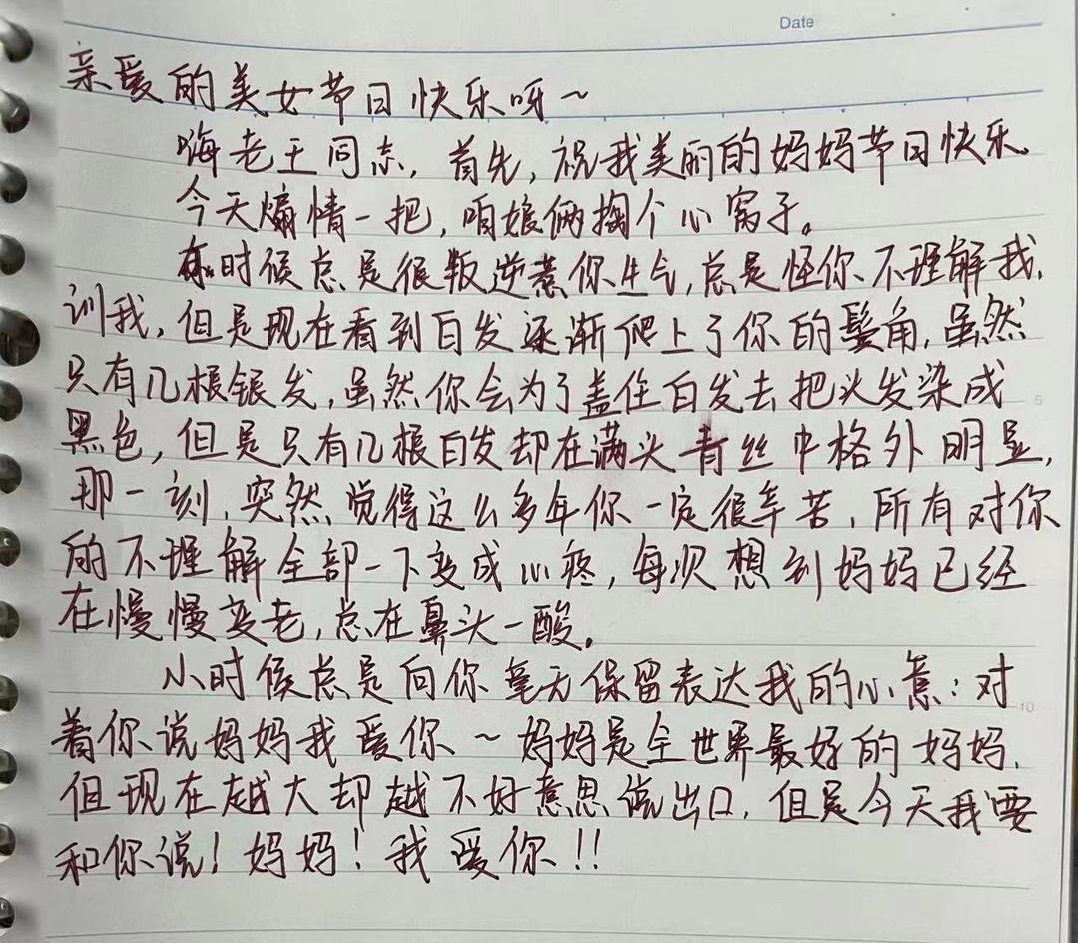 Date
亲爱的美女节日快乐呀～
嗨老王同志，首先，祝我美丽的妈妈节日快乐。
今天煽情一把，咱娘俩掏个心窝子。
有时候总是很叛逆惹你生气，总是怪你不理解我，
训我，但是现在看到白发逐渐爬上了你的鬓角，虽然
只有几根银发，虽然你会为了盖住白发去把头发染成
黑色，但是只有几根白发却在满头青丝中格外明显，
那一刻，突然觉得这么多年你一定很辛苦，所有对你
的不理解全部一下变成心疼，每次想到妈妈已经
在慢慢变老，总在鼻头一酸。
5
小时候总是向你毫无保留表达我的心意：对
10
着你说妈妈我爱你～妈妈是全世界最好的妈妈，
但现在越大却越不好意思说出口，但是今天我要
和你说！妈妈！我爱你！！